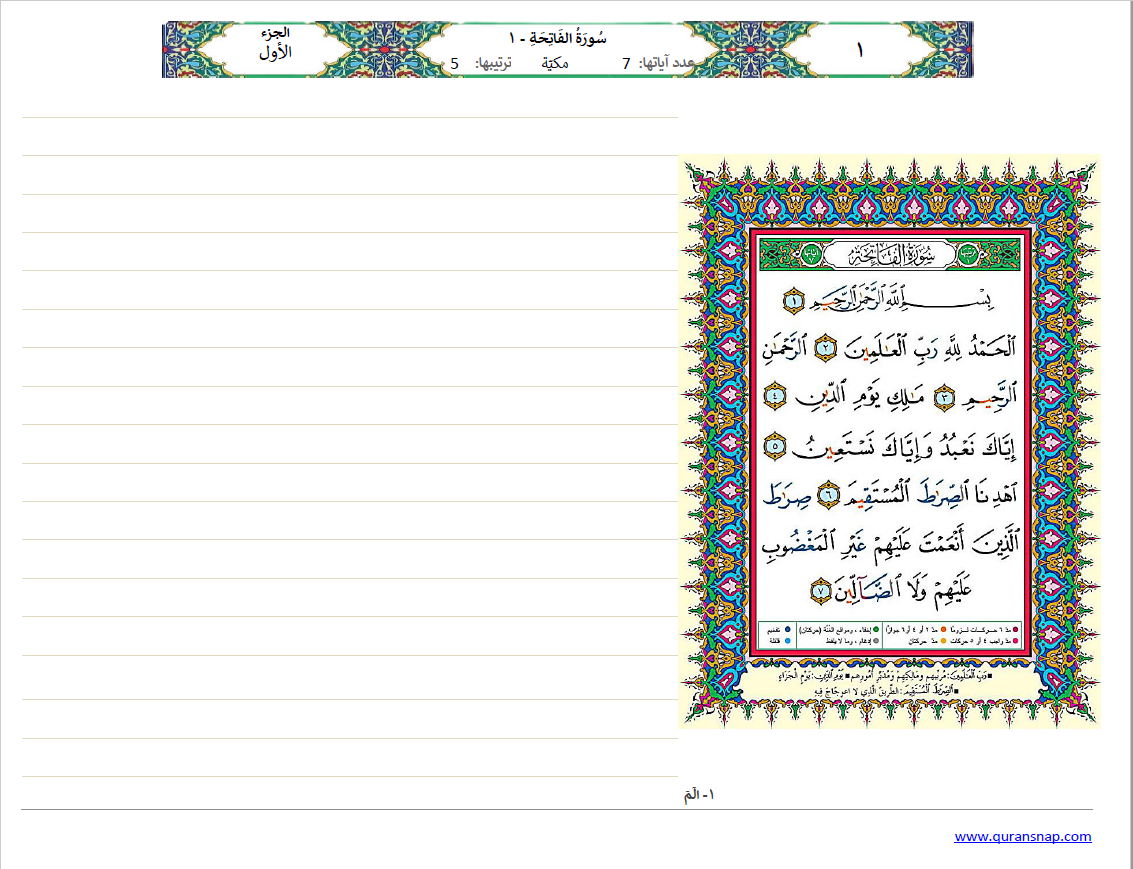 ١
سُورَةُ الفَاتِحَةِ - ١
عدد آياتها: 7 مكيّة ترتيبها: 5
الجزء
الأول
سُورَةُ الْفَاتِحَةِ
بِسْمِ ٱللَّهِ ٱلرَّحْمَٰنِ ٱلرَّحِيمِ ١
ٱلْحَمْدُ لِلَّهِ رَبِّ ٱلْعَٰلَمِينَ ٢ ٱلرَّحْمَٰنِ
ٱلرَّحِيمِ ٣ مَٰلِكِ يَوْمِ ٱلدِّينِ ٤
إِيَّاكَ نَعْبُدُ وَإِيَّاكَ نَسْتَعِينُ ٥
ٱهْدِنَا ٱلصِّرَٰطَ ٱلْمُسْتَقِيمَ ٦ صِرَٰطَ
ٱلَّذِينَ أَنْعَمْتَ عَلَيْهِمْ غَيْرِ ٱلْمَغْضُوبِ
عَلَيْهِمْ وَلَا ٱلضَّآلِّينَ ٧
مدّ ٦ حركات لزوماً مدّ ٢ أو ٤ أو ٦ جوازاً إخفاء، ومواقع الغُنَّة (حركتان) تفخيم
مدّ واجب ٤ أو ٥ حركات مدّ حركتان إدغام، وما لا يُلفظ قلقلة
رَبِّ الْعَالَمِينَ: مُرَبِّيهِمْ وَمَالِكِهِمْ وَمُدَبِّرِ أُمُورِهِم يَوْمِ الدِّينِ: يَوْمِ الْجَزَاءِ
الصِّرَاطَ الْمُسْتَقِيمَ: الطَّرِيقَ الَّذِي لا اعْوِجَاجَ فِيهِ
١- الَمَ
www.quransnap.com